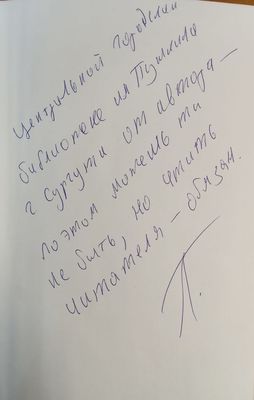 Центральной городской
библиотеке им Пушкина
г Сургута от автора –
поэтом можешь ты
не быть, но чтить
читателя – обязан.
П.